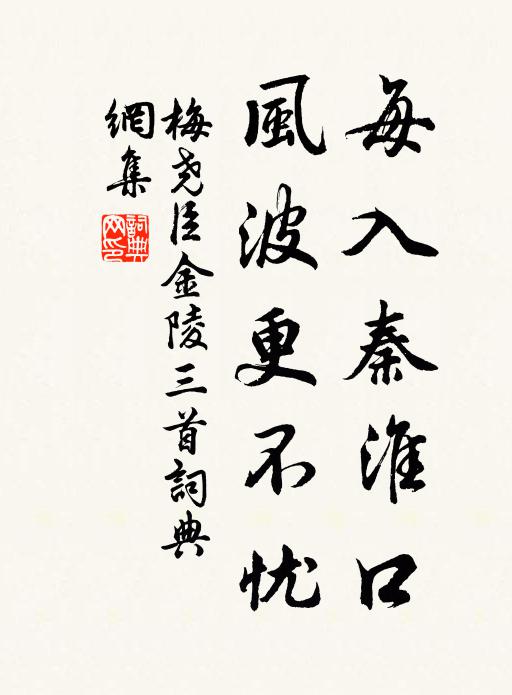 每入秦淮口
風波更不忧
梅尧臣金陵三首詞典
網集
詞典
网印